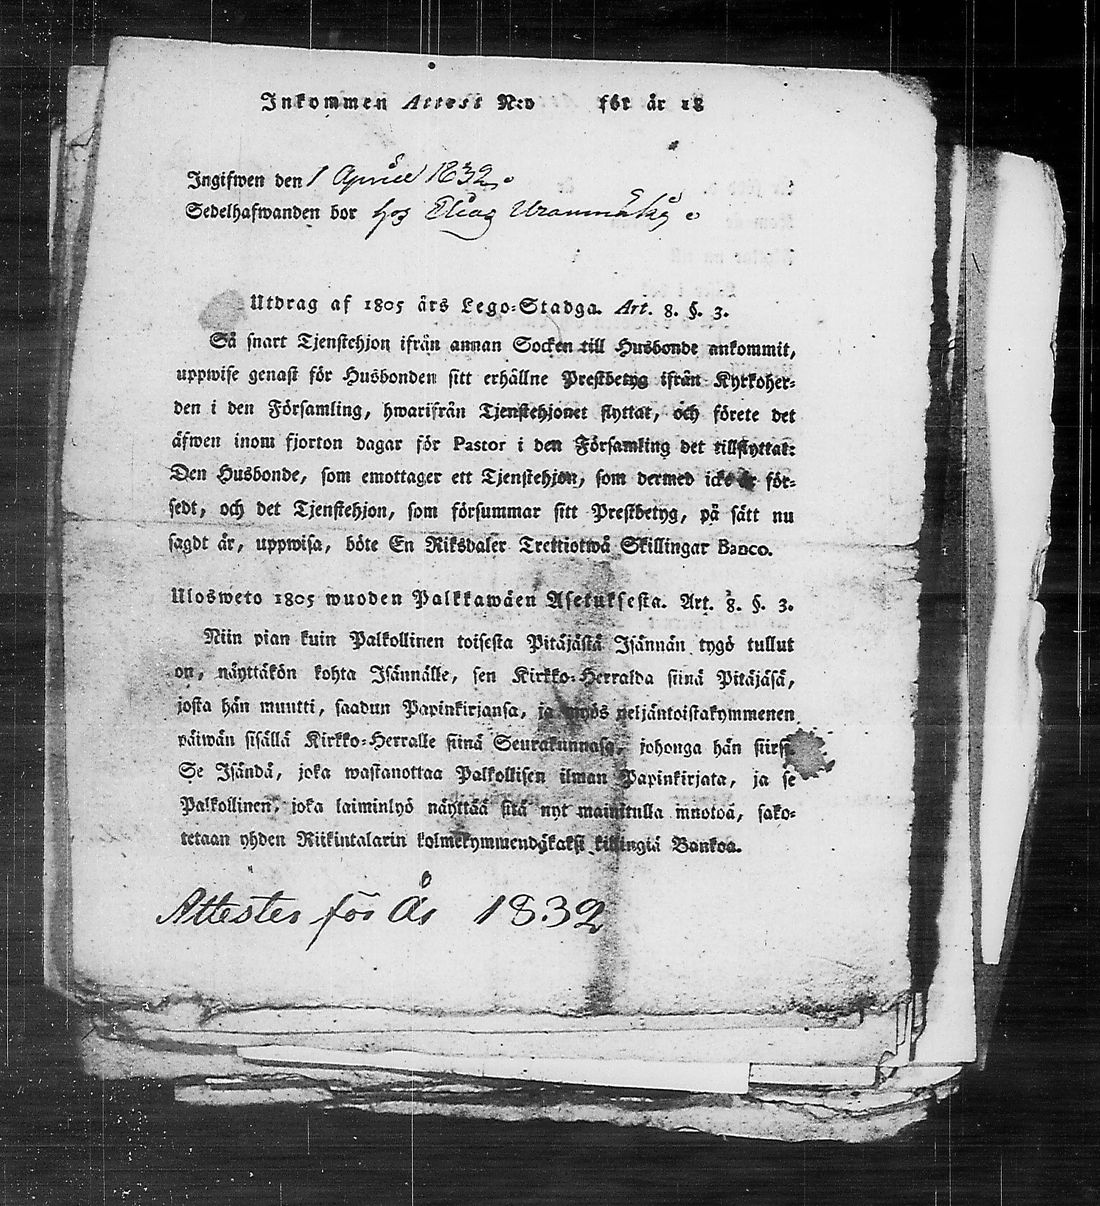 Inkommen Attest N:o för år 18
Ingifwen den 1 Aprill 1832.
Sedelhafwanden bor hos Elias
Utdrag af 1805 års Lego-Stadga. Art. 8. §. 3.
Så snart Tjenstehjon ifrån annan Socken till Husbonde ankommit,
uppwise genast för Husbonden sitt erhållne Prestbetyg ifrån Kyrkoher-
den i den Församling, hwarifrån Tjenstehjonet flyttat, och förete det
äfwen inom fjorton dagar för Pastor i den Församling det tillflyttat:
Den Husbonde, som emottager ett Tjenstehjon, som dermed icke är för-
sedt, och det Tjenstehjon, som försummar sitt Prestbetyg, på sätt nu
sagdt är, uppwisa, böte En Riksdaler Trettiotwå Skillingar Banco.
Ulosweto 1805 wuoden Palkkawäen Asetuksesta. Art. 8. §. 3.
Niin pian kuin Palkollinen toisesta Pitäjästä Isännän tygö tullut
on, näyttäkön kohta Isännälle, sen Kirkko-Herralda siinä Pitäjäsä,
josta hän muutti, saadun Papinkirjansa, ja myös neljäntoistakymmenen
päiwän sisällä Kirkko-Herralle siinä Seurakunnasa, johonga hän siirsi.
Se Isändä, joka wastanottaa Palkollisen ilman Papinkirjata, ja se
Palkollinen, joka laiminlyö näyttää sitä nyt mainitulla muotoa, sako-
tetaan yhden Riikintalarin kolmekymmendäkaksi killingiä Bankoa.
Attester för År 1832